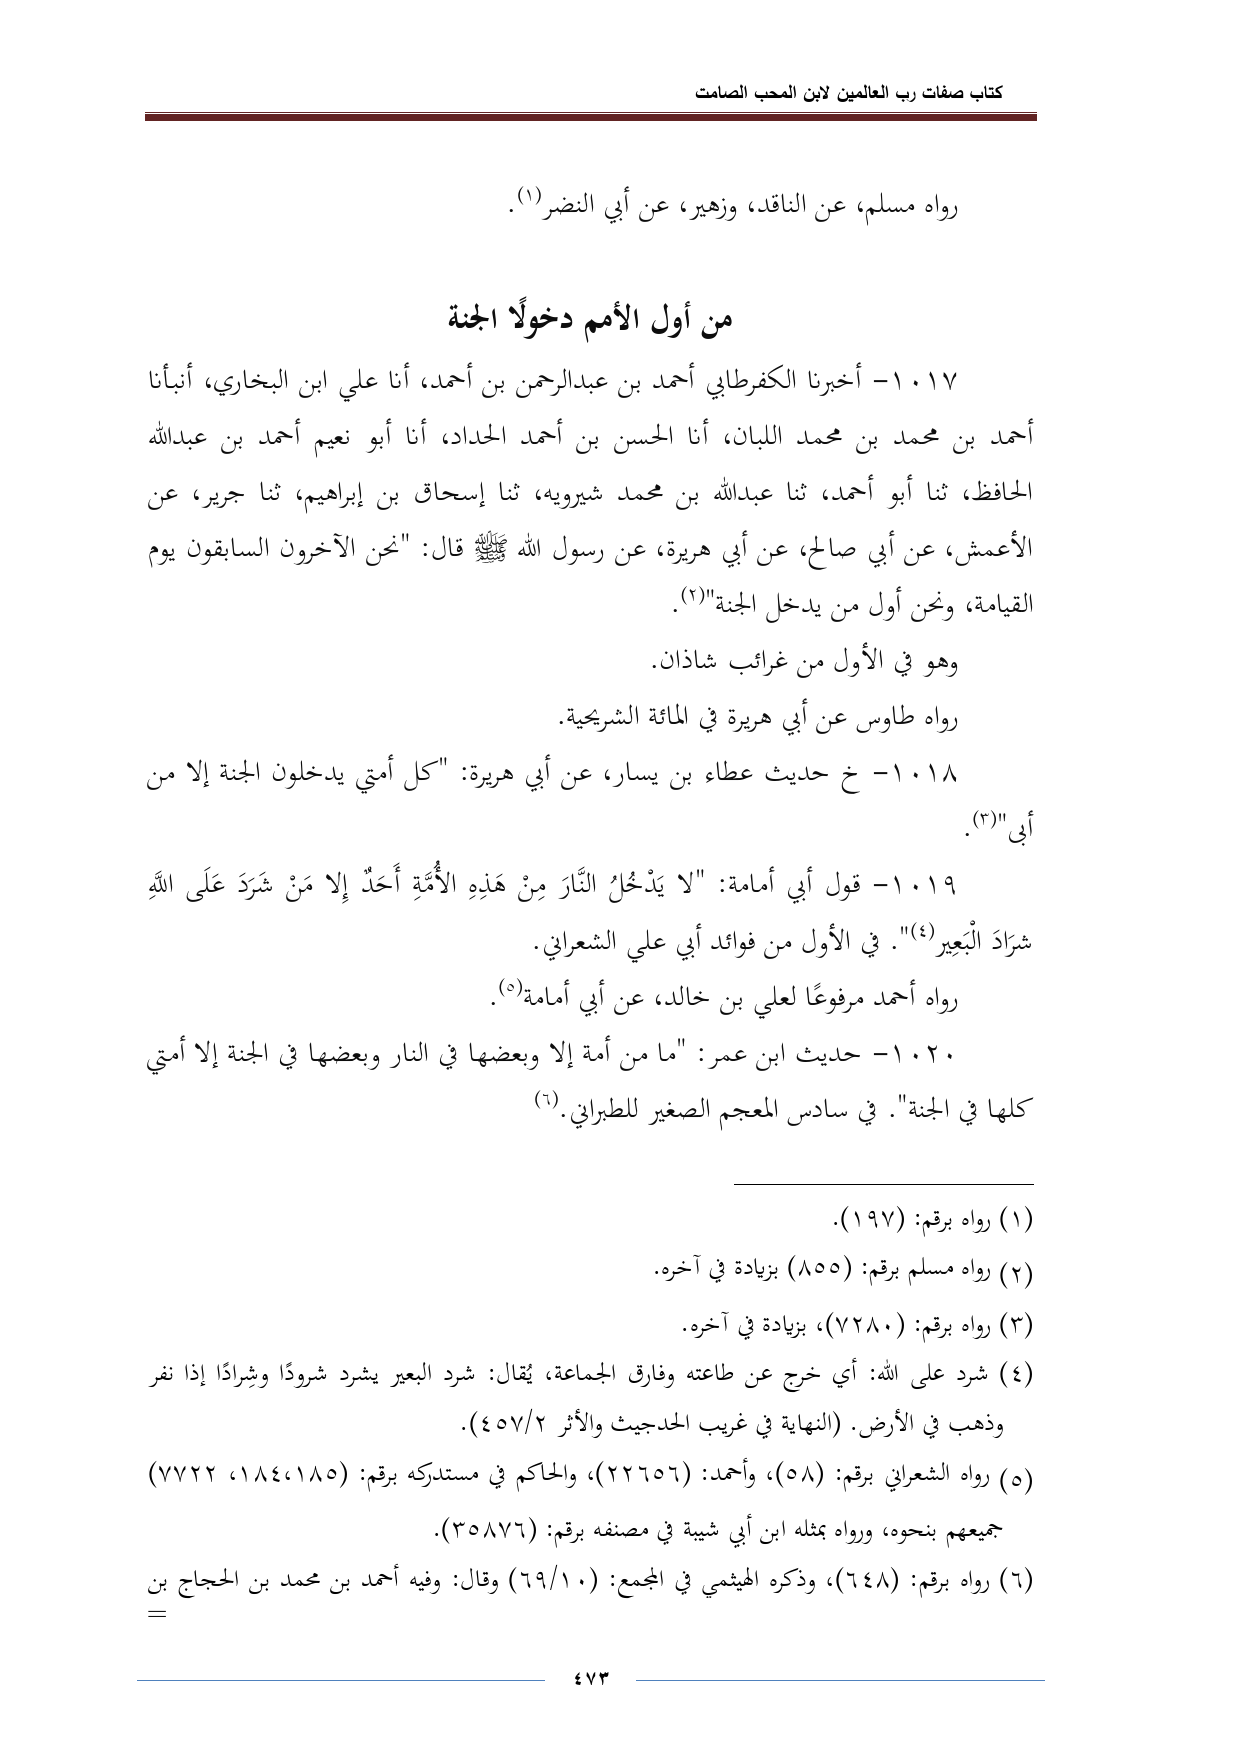 كتاب صفات رب العالمين لابن المحب الصامت
رواه مسلم، عن الناقد، وزهير، عن أبي النضر(١).
من أول الأمم دخولًا الجنة
١٠١٧- أخبرنا الكفرطابي أحمد بن عبدالرحمن بن أحمد، أنا علي ابن البخاري، أنبأنا
أحمد بن محمد بن محمد اللبان، أنا الحسن بن أحمد الحداد، أنا أبو نعيم أحمد بن عبدالله
الحافظ، ثنا أبو أحمد، ثنا عبدالله بن محمد شيرويه، ثنا إسحاق بن إبراهيم، ثنا جرير، عن
الأعمش، عن أبي صالح، عن أبي هريرة، عن رسول الله ﷺ قال: "نحن الآخرون السابقون يوم
القيامة، ونحن أول من يدخل الجنة"(٢).
وهو في الأول من غرائب شاذان.
رواه طاوس عن أبي هريرة في المائة الشريحية.
١٠١٨- خ حديث عطاء بن يسار، عن أبي هريرة: "كل أمتي يدخلون الجنة إلا من
أبى"(٣).
١٠١٩- قول أبي أمامة: "لا يَدْخُلُ النَّارَ مِنْ هَذِهِ الأُمَّةِ أَحَدٌ إِلا مَنْ شَرَدَ عَلَى اللَّهِ
شرَادَ الْبَعِير(٤)". في الأول من فوائد أبي علي الشعراني.
رواه أحمد مرفوعًا لعلي بن خالد، عن أبي أمامة(٥).
١٠٢٠- حديث ابن عمر: "ما من أمة إلا وبعضها في النار وبعضها في الجنة إلا أمتي
كلها في الجنة". في سادس المعجم الصغير للطبراني.(٦)
(١) رواه برقم: (١٩٧).
(٢) رواه مسلم برقم: (٨٥٥) بزيادة في آخره.
(٣) رواه برقم: (٧٢٨٠)، بزيادة في آخره.
(٤) شرد على الله: أي خرج عن طاعته وفارق الجماعة، يُقال: شرد البعير يشرد شرودًا وشِرادًا إذا نفر
وذهب في الأرض. (النهاية في غريب الحدجيث والأثر ٤٥٧/٢).
(٥) رواه الشعراني برقم: (٥٨)، وأحمد: (٢٢٦٥٦)، والحاكم في مستدركه برقم: (١٨٤،١٨٥، ٧٧٢٢)
جميعهم بنحوه، ورواه بمثله ابن أبي شيبة في مصنفه برقم: (٣٥٨٧٦).
(٦) رواه برقم: (٦٤٨)، وذكره الهيثمي في المجمع: (٦٩/١٠) وقال: وفيه أحمد بن محمد بن الحجاج بن
=
٤٧٣